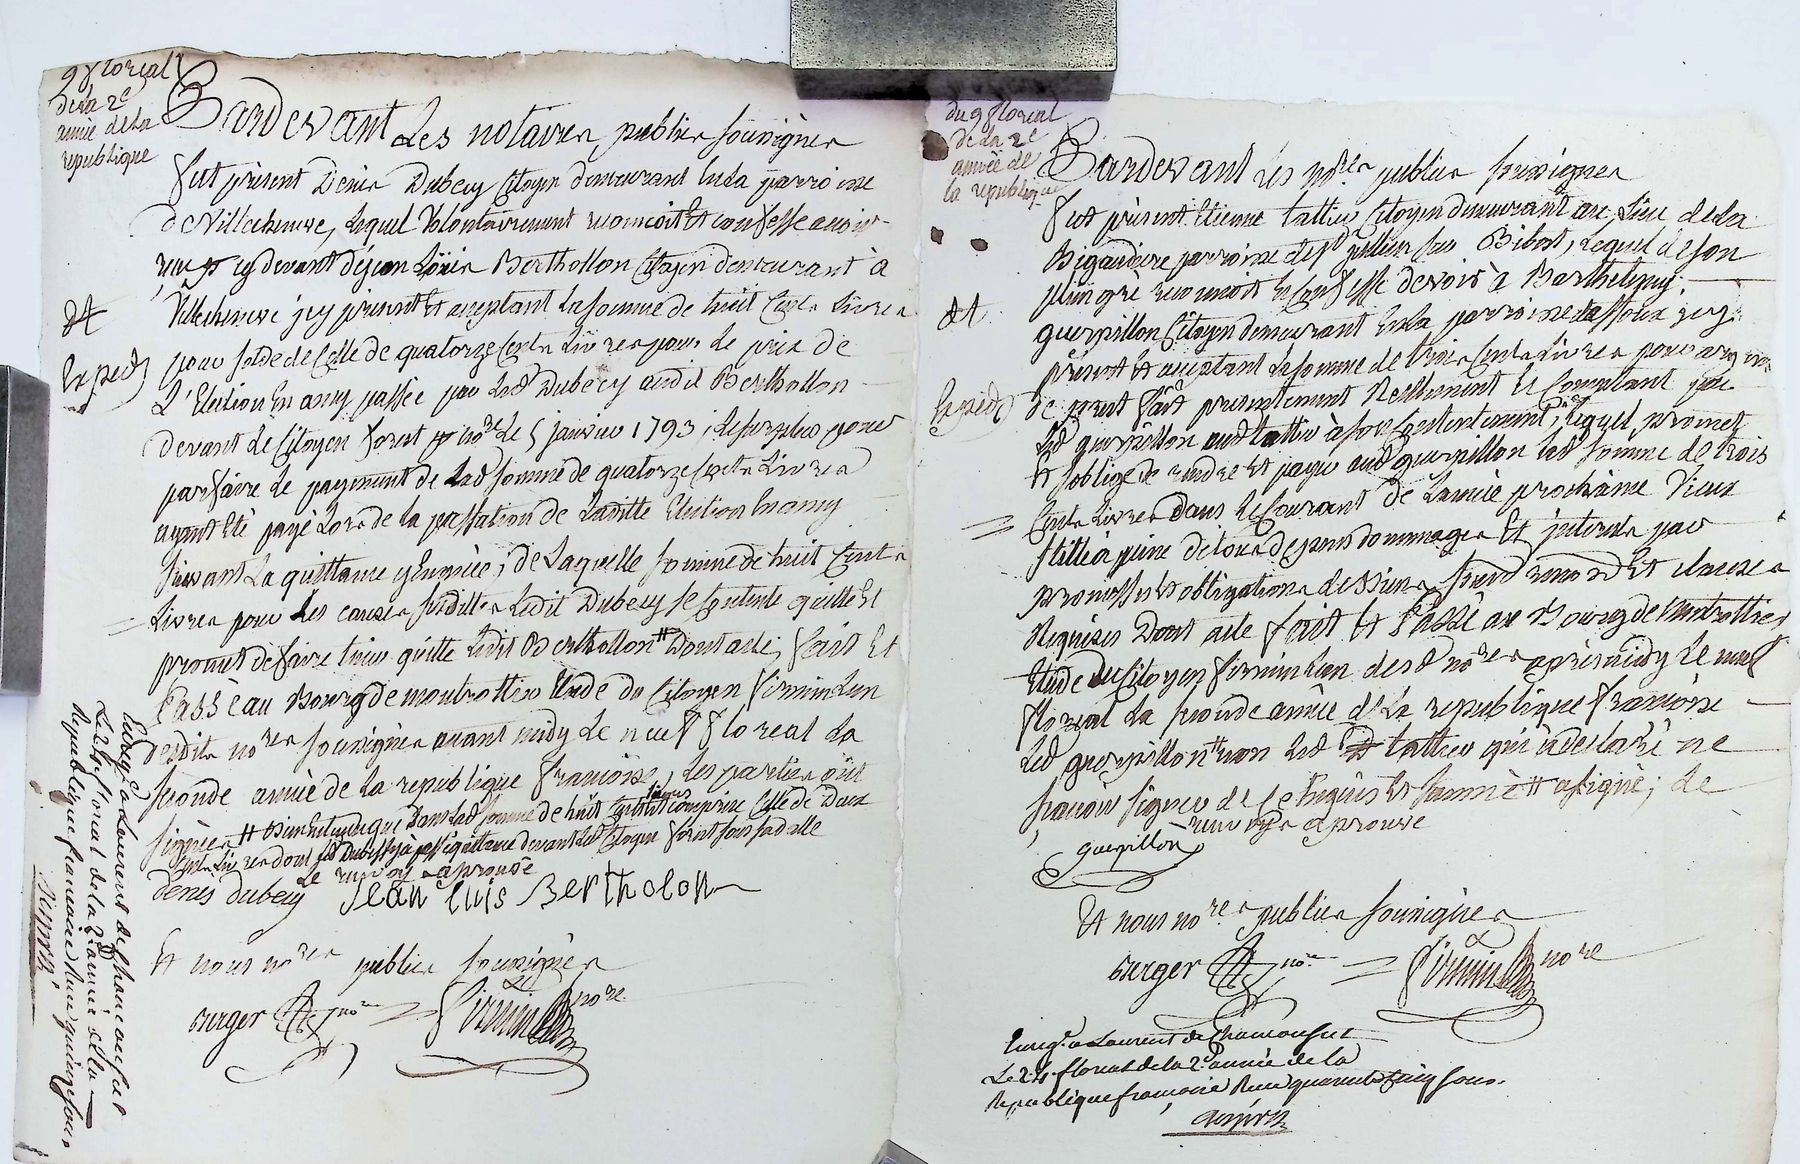 9 floreal
de la 2e
année de la
republique
Pardevant Les notaires publics soussignés
fut présent Denis Dubecy Citoyen demeurant en la parroisse
de Villecheneve, Lequel volontairement reconnoit Et confesse avoir
reçu cy devant de jean Loüis Berthollon Citoyen demeurant à
Villecheneve jcy présent Et acceptant La somme de huit Cents Livres
pour solde de Celle de quatorze Cents Livres pour Le prix de
L'Election En amy passée par Led Dubecy audit Berthollon
devant Le Citoyen forest nore Le 5 janvier 1793, Le surplus pour
parfaire Le payement de Lad somme de quatorze Cents Livres
ayant Eté payé Lors de la passation de Laditte Election En amy
suivant La quittance y Enoncée; de Laquelle somme de huit Cents
Livres pour Les causes susdittes Ledit Dubecy se Contente quitte Et
promet defaire tenir quitte Ledit Berthollon # Dont acte; fait Et
Passé au Bourg de montrottier Etude du Citoyen firmin L'un
desdits nores soussignés avant midy Le neuf floreal La
seconde année de la republique françoise, Les parties ont
signé # Bien Entendu que Dans Lad somme de huit Cents Livres Est comprise Celle de Deux
Cents Livres dont Led Dubecy à passé quittance devant Led Citoyen forest sous sad alle
Le renvoy approuvé
denis dubecy Jean Luis Bertholon
Et nous nores publics soussignés
Burger nore = firmin nore
Et
Exped
Enregé a Laurent de Chamousset
Le 24 floreal de la 2e année de la
Republique francoise Reçu quinze sous
du 9 floreal
de la 2e
année de
la republique
Pardevant Les nores publics soussignés
fut présent Etienne tattier Citoyen demeurant au Lieu de La
Bigaudiere parroisse de st jullien sur Bibost, Lequel de son
plein gré reconnoit Et Confesse devoir à Barthelemy
guerpillon Citoyen demeurant En La parroisse d'affoux jcy
présent Et acceptant La somme de trois Cents Livres pour argent
de prest fait presentement Réellement Et Comptant par
Led guerpillon aud tattier à son Contentement, Lequel promet
Et s'oblige de rendre Et payer aud guerpillon Lad somme de trois
Cents Livres Dans Le Courant de L'année prochaine Vieux
stille à peine de tous depens dommages Et jnterets par
promesses Et obligations de ses biens, soumd renond Et clauses
Requises Dont acte fait Et Passé au Bourg de Montrottier
Etude du Citoyen firmin L'un desd nores après midy Le neuf
floreal La seconde année de La republique françoise
Led guerpillon # non Led tattier qui à declaré ne
sçavoir signer de Ce Enquis Et sommé # a signé; Le
renvoys approuvé
guerpillon
Et nous nores publics soussignés
Burger nore = firmin nore
Et
Exped
Enregé a Laurent de Chamousset
Le 24 floreal de la 2e année de la
Republique francoise Reçu quarante Cinq sous